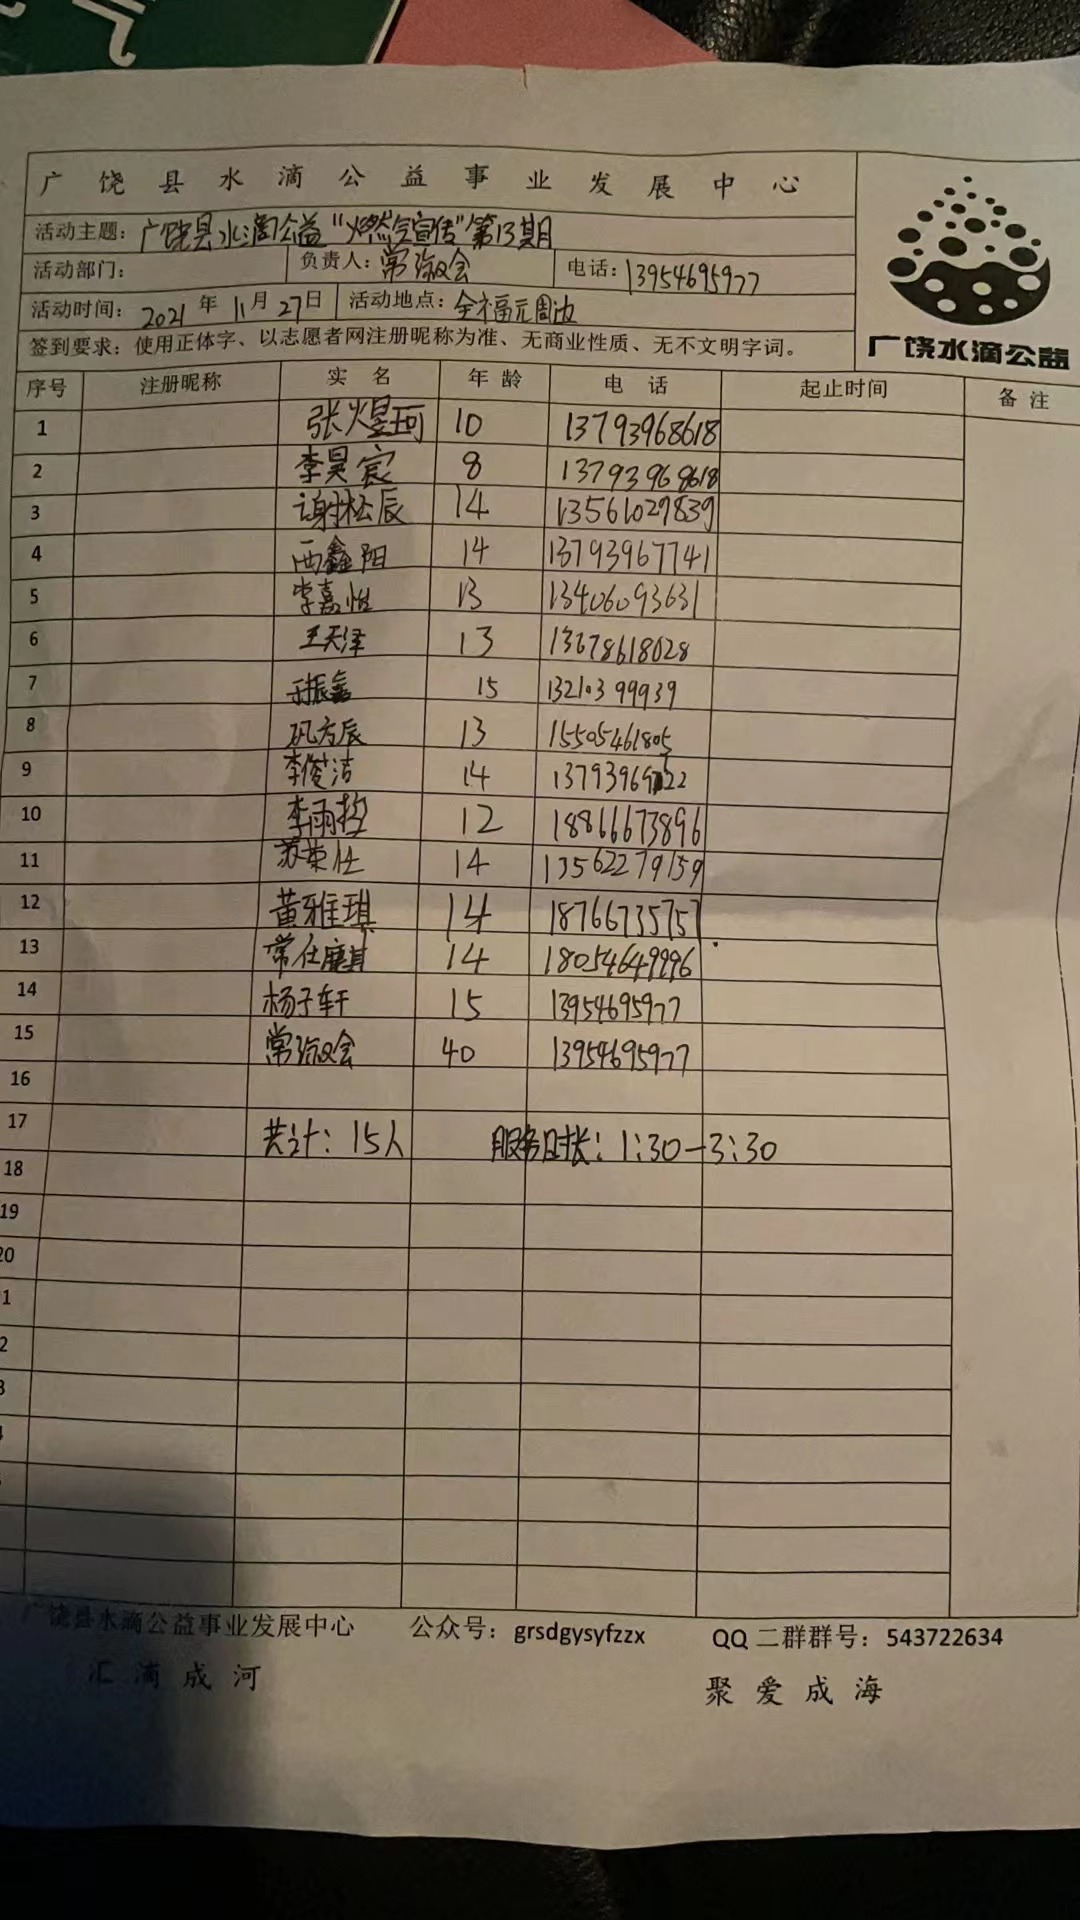 气
广饶县水滴公益事业发展中心
活动主题：广饶县水滴公益"燃气宣传"第13期
活动部门： 负责人：常淑会 电话：13954695977
活动时间：2021年11月27日 活动地点：全福元周边
签到要求：使用正体字、以志愿者网注册昵称为准、无商业性质、无不文明字词。
广饶水滴公益
序号 注册昵称 实名 年龄 电话 起止时间 备注
1 张煜珂 10 13793968618
2 李昊宸 8 13793968618
3 谢松辰 14 13561029839
4 西鑫阳 14 13793967741
5 李嘉怡 13 13406093631
6 王天泽 13 13678618028
7 振鑫 15 13210399939
8 巩方辰 13 15505461805
9 李俊洁 14
10 李雨哲 12 18866673896
11 苏荣仕 14 13562279159
12 黄雅琪 14 18766735757
13 常仕麒 14 18054649996
14 杨子轩 15 13954695977
15 常淑会 40 13954695977
16
17 共计：15人 服务时长：1:30-3:30
18
19
20
1
2
3
广饶县水滴公益事业发展中心 公众号：grsdgysyfzzx QQ二群群号：543722634
汇滴成河 聚爱成海